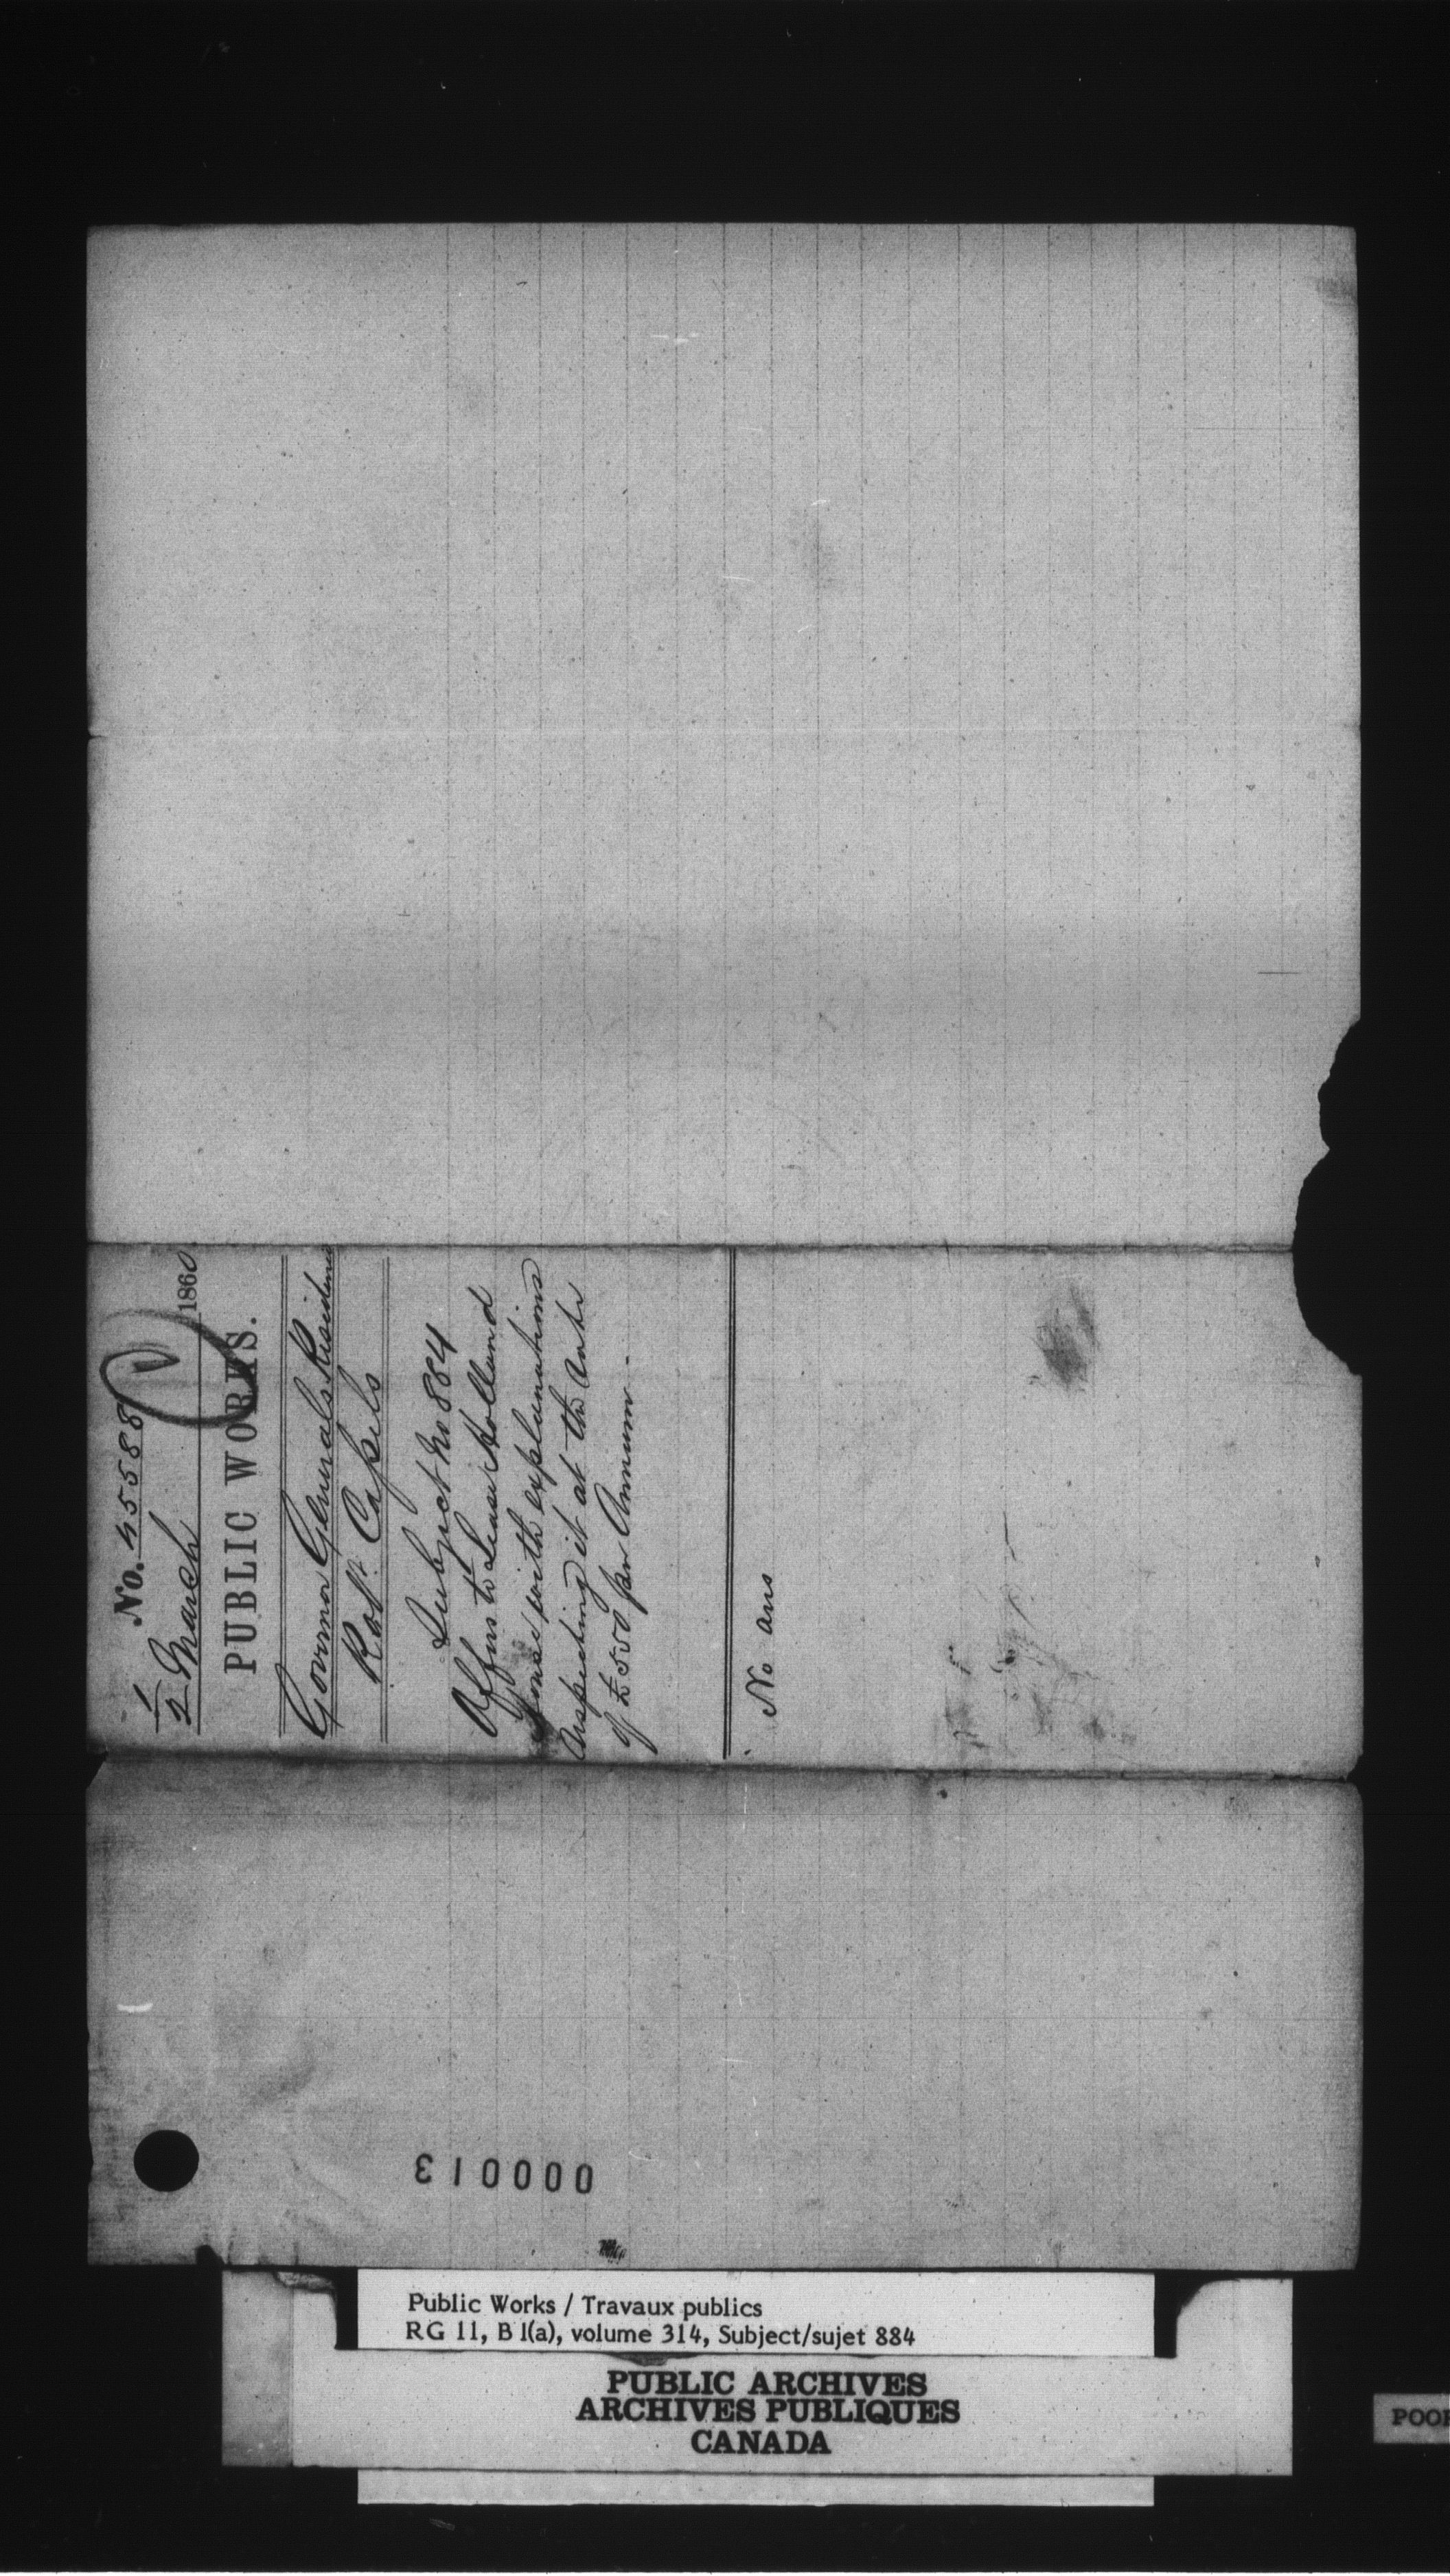 No. 45588
1/2 March 1860
PUBLIC WORKS.
Governor Generals Residence
Robt. Capels
Subject No 884
Offers to lease Holland
House with explanations
respecting it at the rate
of £550 per Annum.
No ans
000013
Public Works / Travaux publics
RG 11, B1(a), volume 314, Subject/sujet 884
PUBLIC ARCHIVES
ARCHIVES PUBLIQUES
CANADA
POOR